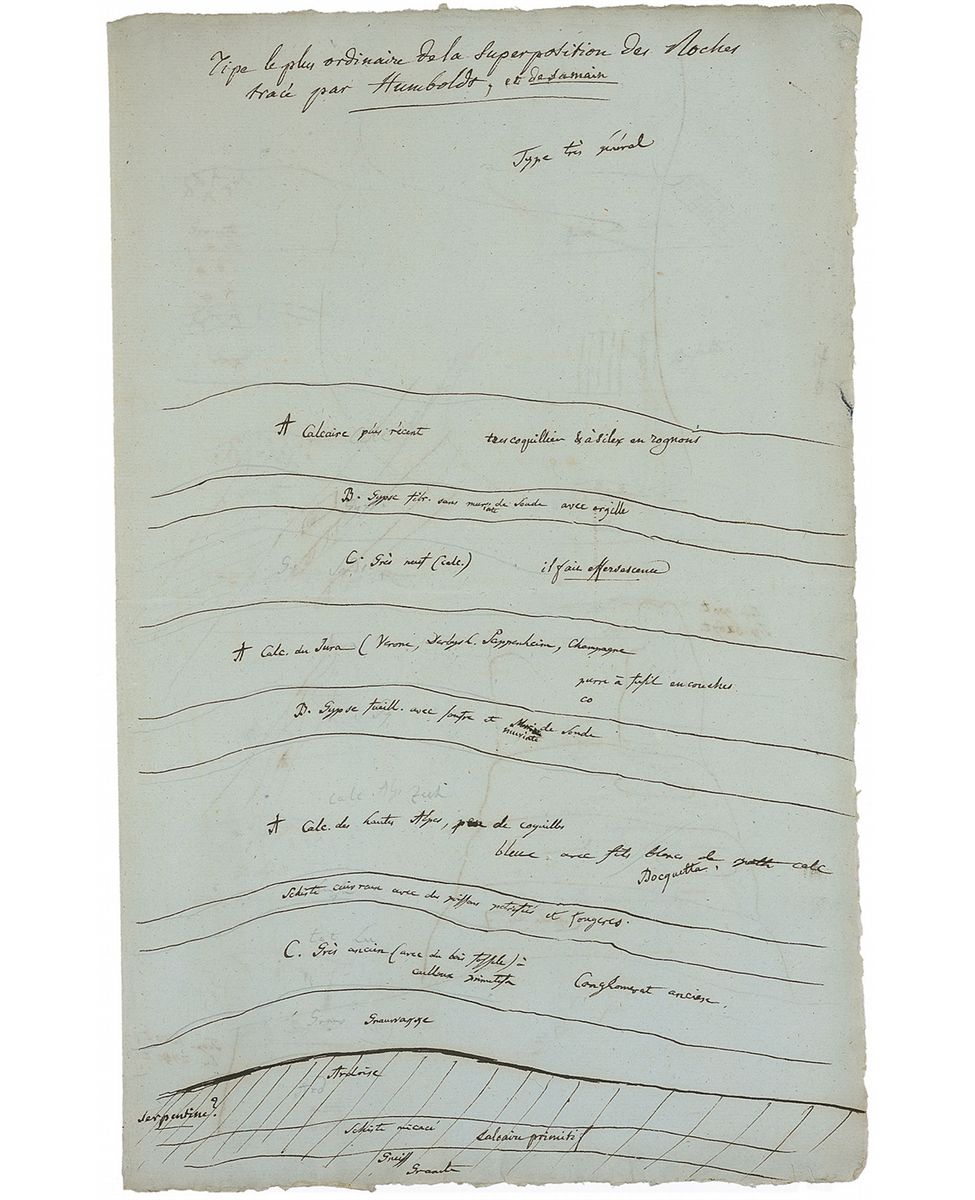 Tipe le plus ordinaire de la Superposition des Roches
tracé par Humboldt, et de sa main
Type très général
A Calcaire plus récent trescoquillier & à Silex en rognons
B. Gypse fibr. sans muriate de Soude avec argille
C. Grès neuf (calc.) il fait effervescence
A Calc. du Jura (Verone, Derbysh. Pappenheim, Champagne
pierre à fusil en couches.
co
B. Gypse feuill. avec soufre et muriate de Soude
calc. Alp. Zech
A Calc. des hautes Alpes, peu de coquilles
bleue avec fils blancs de calc
Bocquetta.
Schiste cuivreux avec des poissons petrifiés et fougères.
C. Grès ancien (avec du bois fossile) à
cailloux primitifs
Conglomerat ancien.
Grauwagge
Ardoise
Serpentine?
Schiste micacé Calcaire primitif
Gneiss
Granite